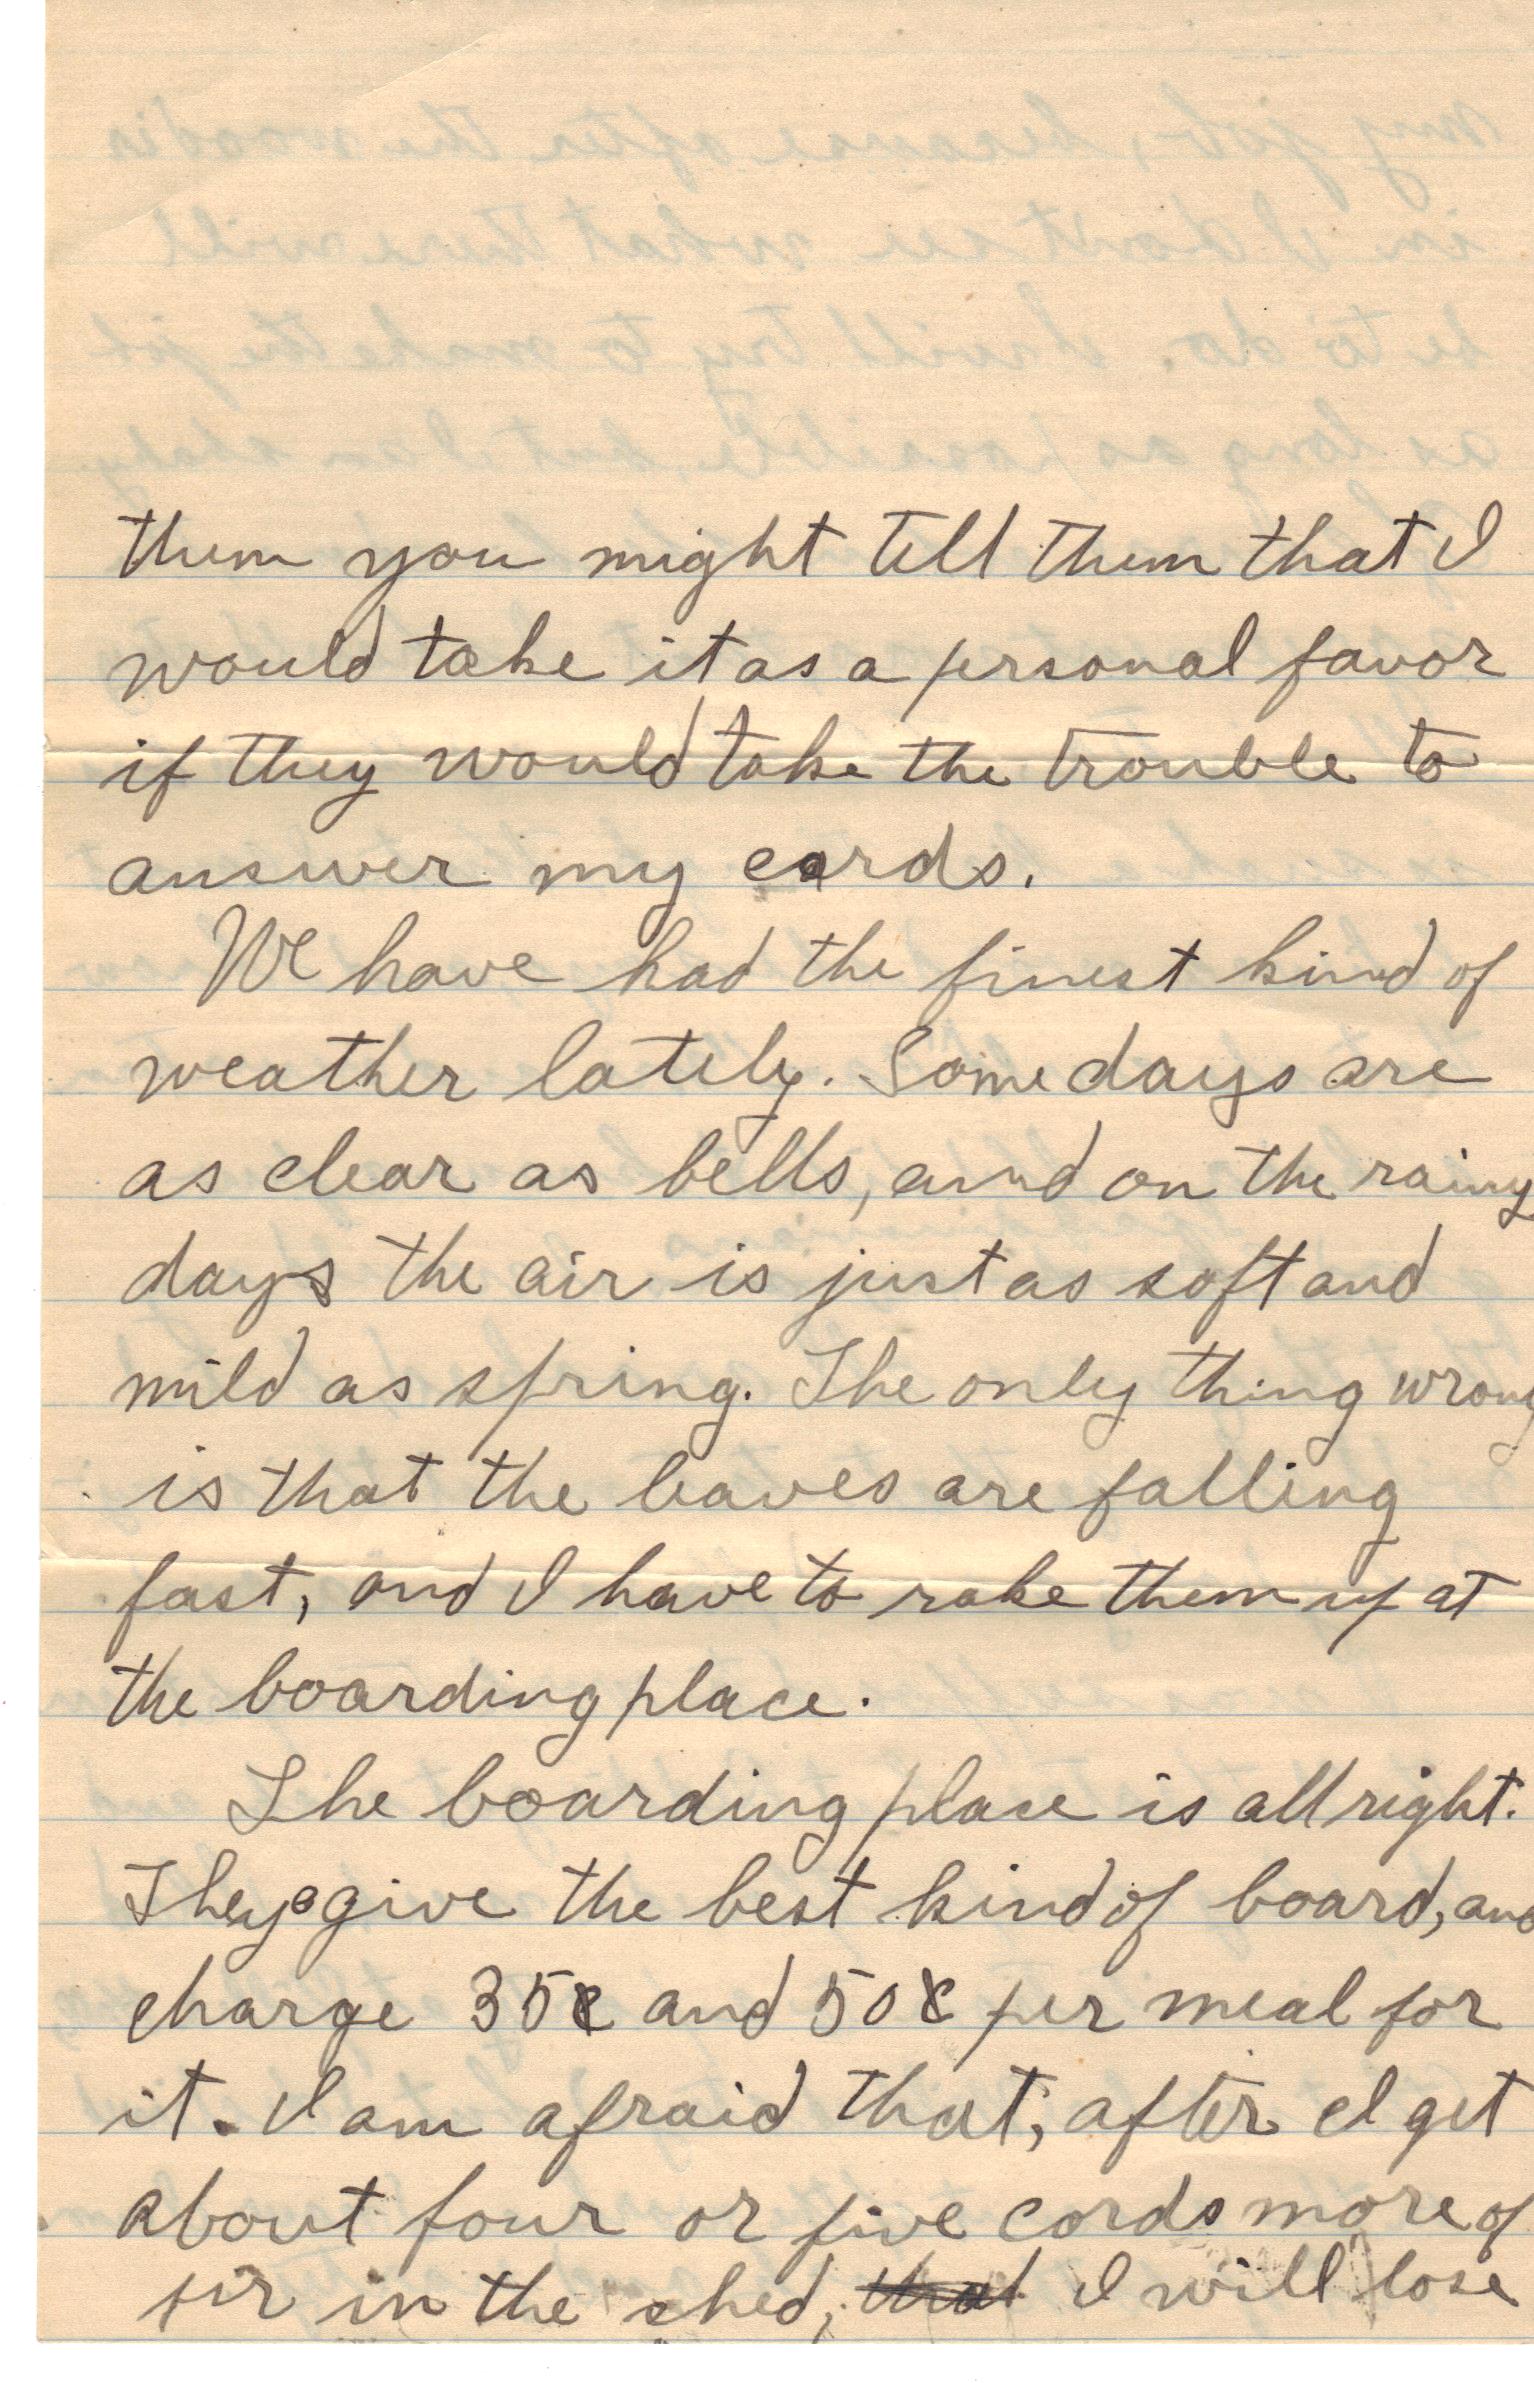 them you might tell them that I
would take it as a personal favor
if they would take the trouble to
answer my cards.
We have had the finest kind of
weather lately. Some days are
as clear as bells, and on the rainy
days the air is just as soft and
mild as spring. The only thing wrong
is that the leaves are falling
fast, and I have to rake them up at
the boarding place.
The boarding place is all right.
They give the best kind of board, and
charge 35¢ and 50¢ per meal for
it. I am afraid that, after I get
about four or five cords more of
fir in the shed, that I will lose